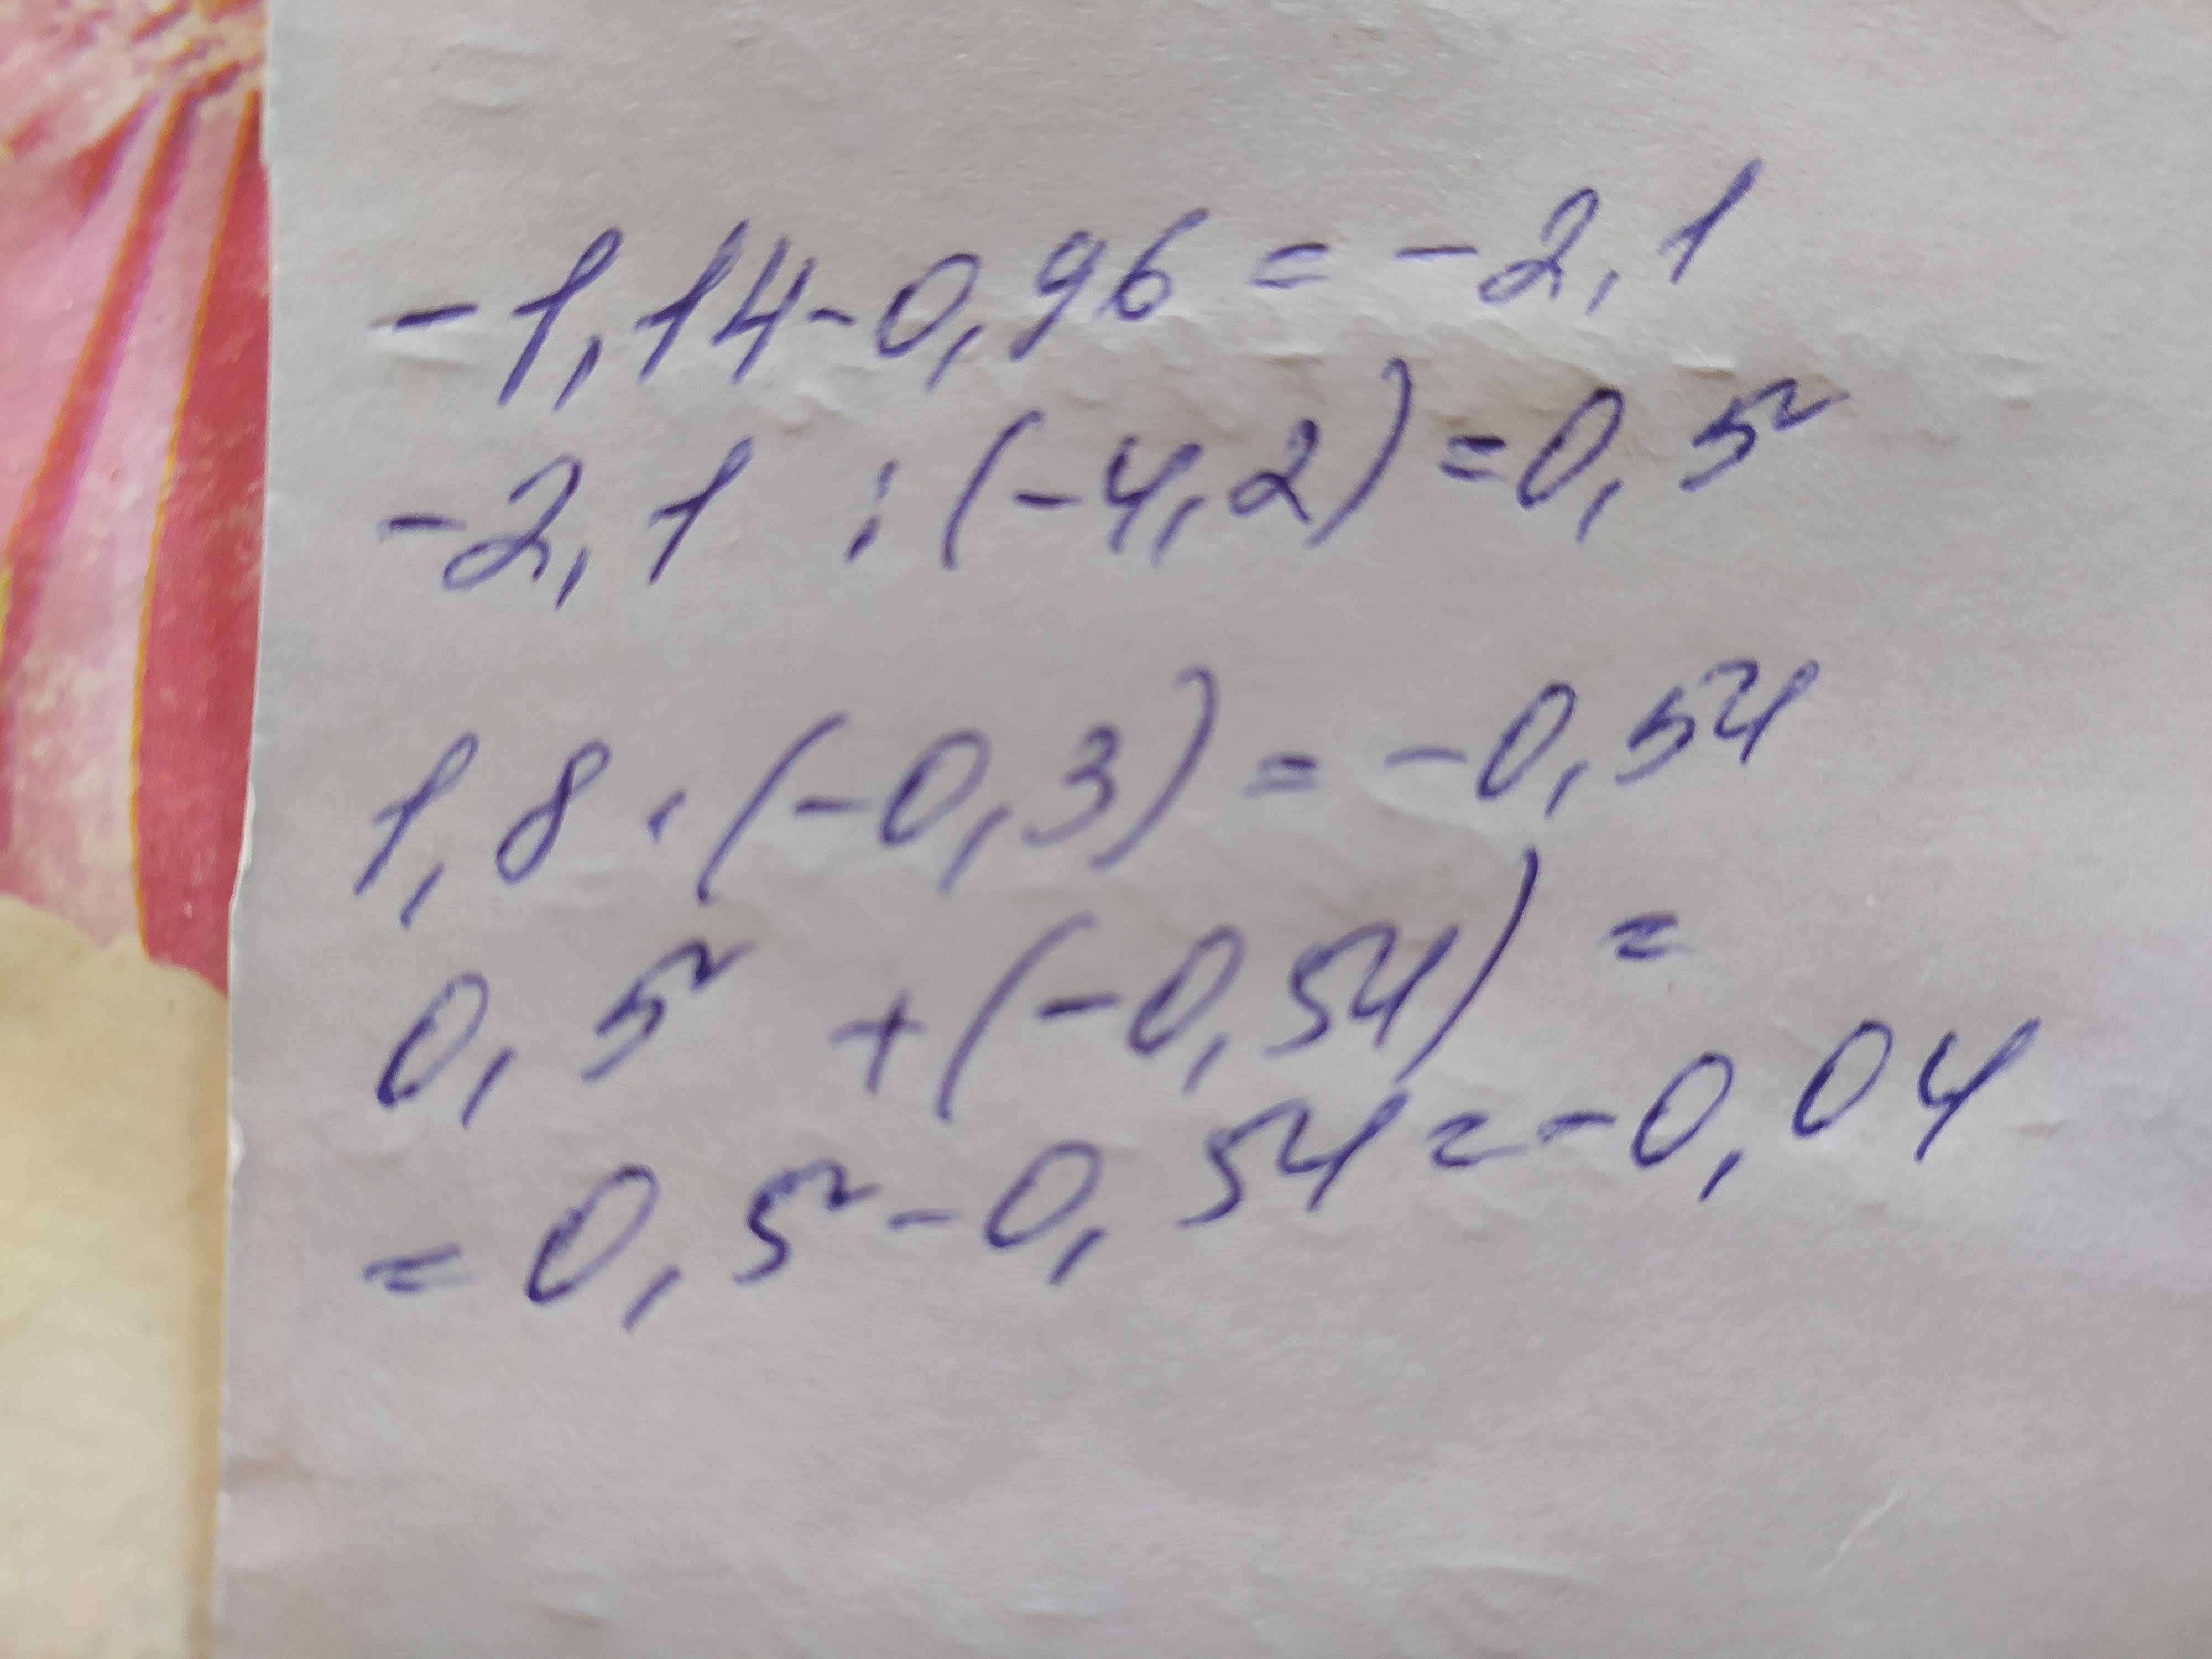 -1,14-0,96 = -2,1
-2,1 : (-4,2) = 0,5
1,8 · (-0,3) = -0,54
0,5 + (-0,54) =
= 0,5 - 0,54 = -0,04